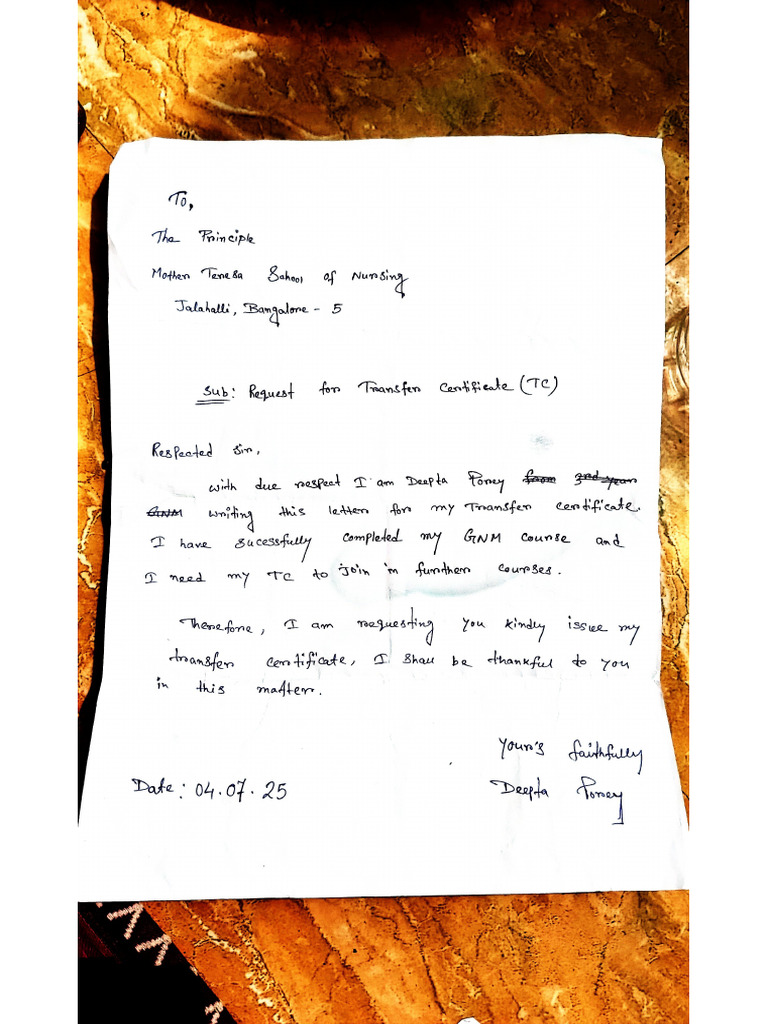 To,
The Principle
Mother Teresa School of Nursing
Jalahalli, Bangalore - 5
Sub: Request for Transfer Certificate (TC)
Respected Sir,
with due respect I am Deepta Porey from 3rd year
GNM writing this letter for my Transfer certificate.
I have sucessfully completed my GNM course and
I need my TC to join in further courses.
Therefore, I am requesting you kindly issue my
transfer certificate, I shall be thankful to you
in this matter.
Your's faithfully
Date: 04.07.25 Deepta Porey